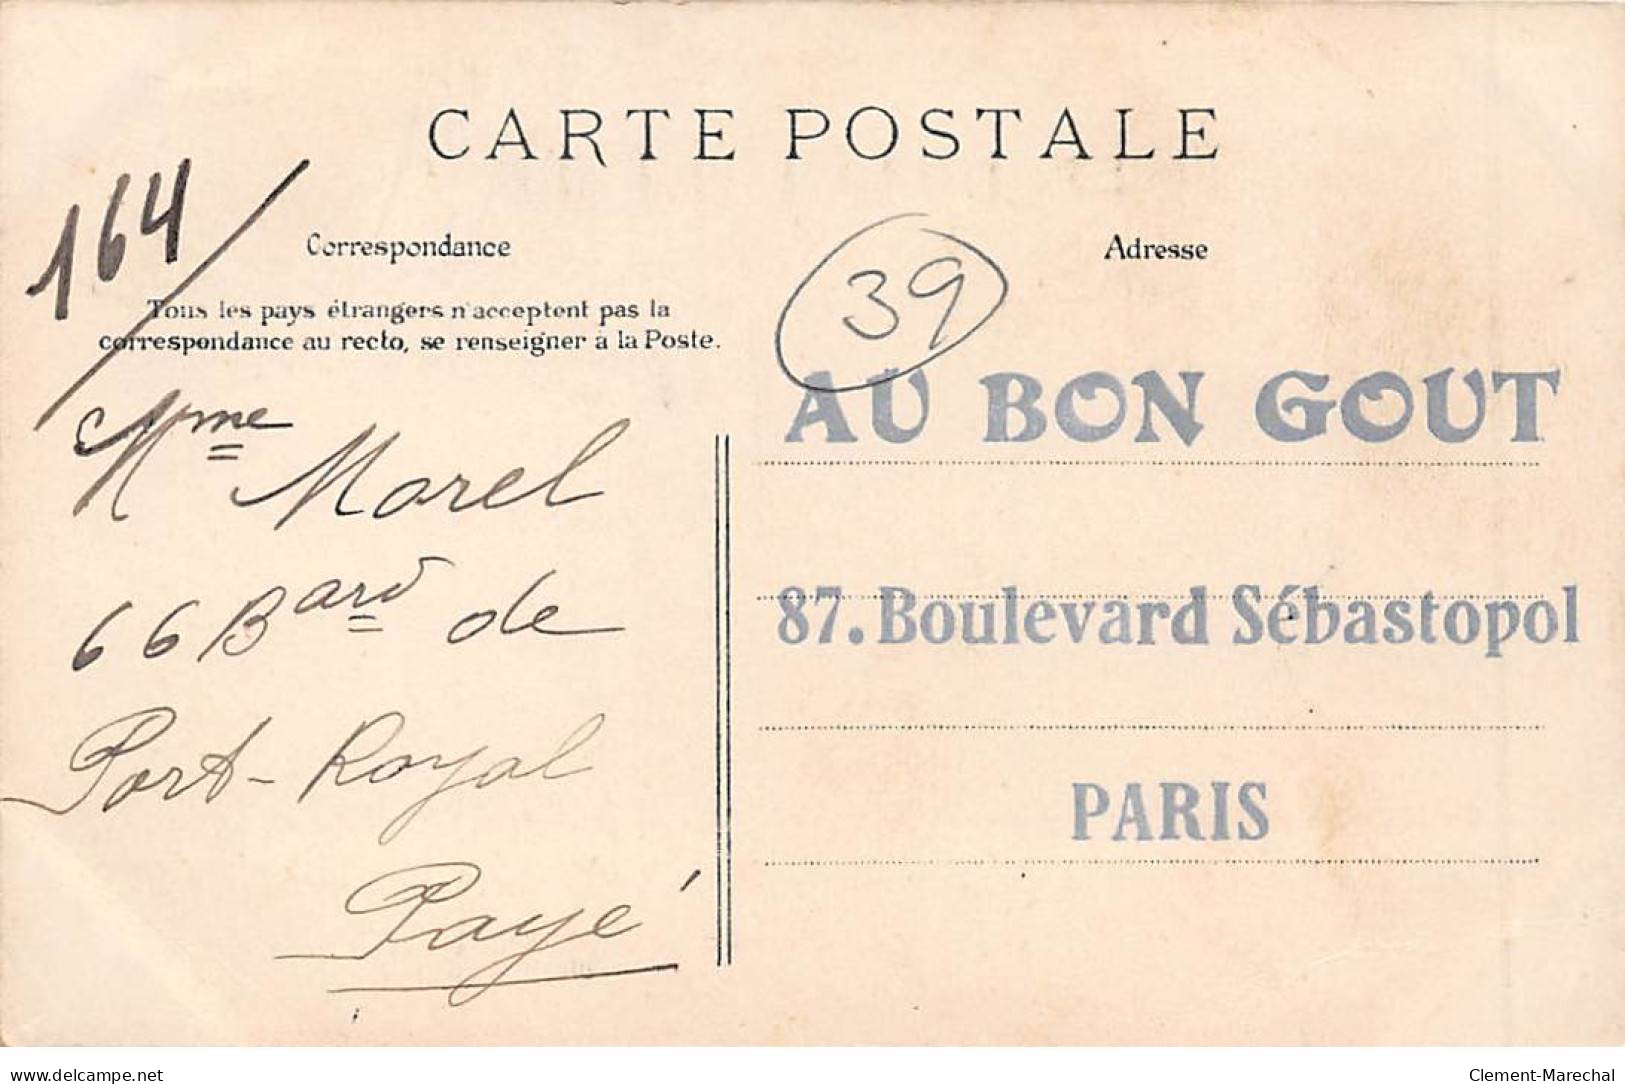 CARTE POSTALE
164
Correspondance
Tous les pays étrangers n'acceptent pas la
correspondance au recto, se renseigner à la Poste.
Mme Morel
66 Bard de
Port-Royal
Payé
Adresse
39
AU BON GOUT
87. Boulevard Sébastopol
PARIS
www.delcampe.net
Clement-Marechal